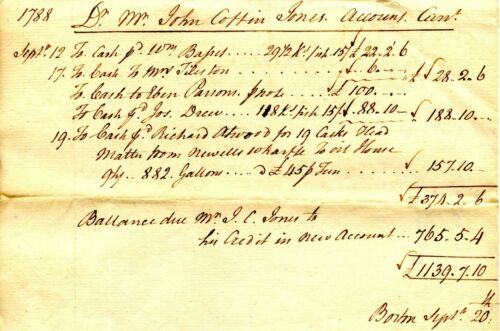 1788 Dr. Mr. John Coffin Jones. Account. Curnt.
Septr. 12 To Cash pd. Wm Basses .... 29½ Kl. fish 15/ £ 22.. 2. 6
17. To Cash To Mrs Tileston ...... £ .. 6.. — £ 28.. 2.. 6
To Cash to Eben Parsons .. £ 100.. —
To Cash pd. Jos. Drew ... 118 Kl. fish 15/ £ 88.. 10.. £ 188.. 10..
19. To Cash pd. Richard Atwood for 19 Casks Head
Matter from Newells Wharfe To oil House
882. Gallons .. £ 45 p Tun .. 157.. 10..
£ 374.. 2.. 6
Ballance due Mr. J. C. Jones to
his Credit in New Account .... 765.. 5.. 4
£ 1139.. 7. 10
Boston Septr. 20th